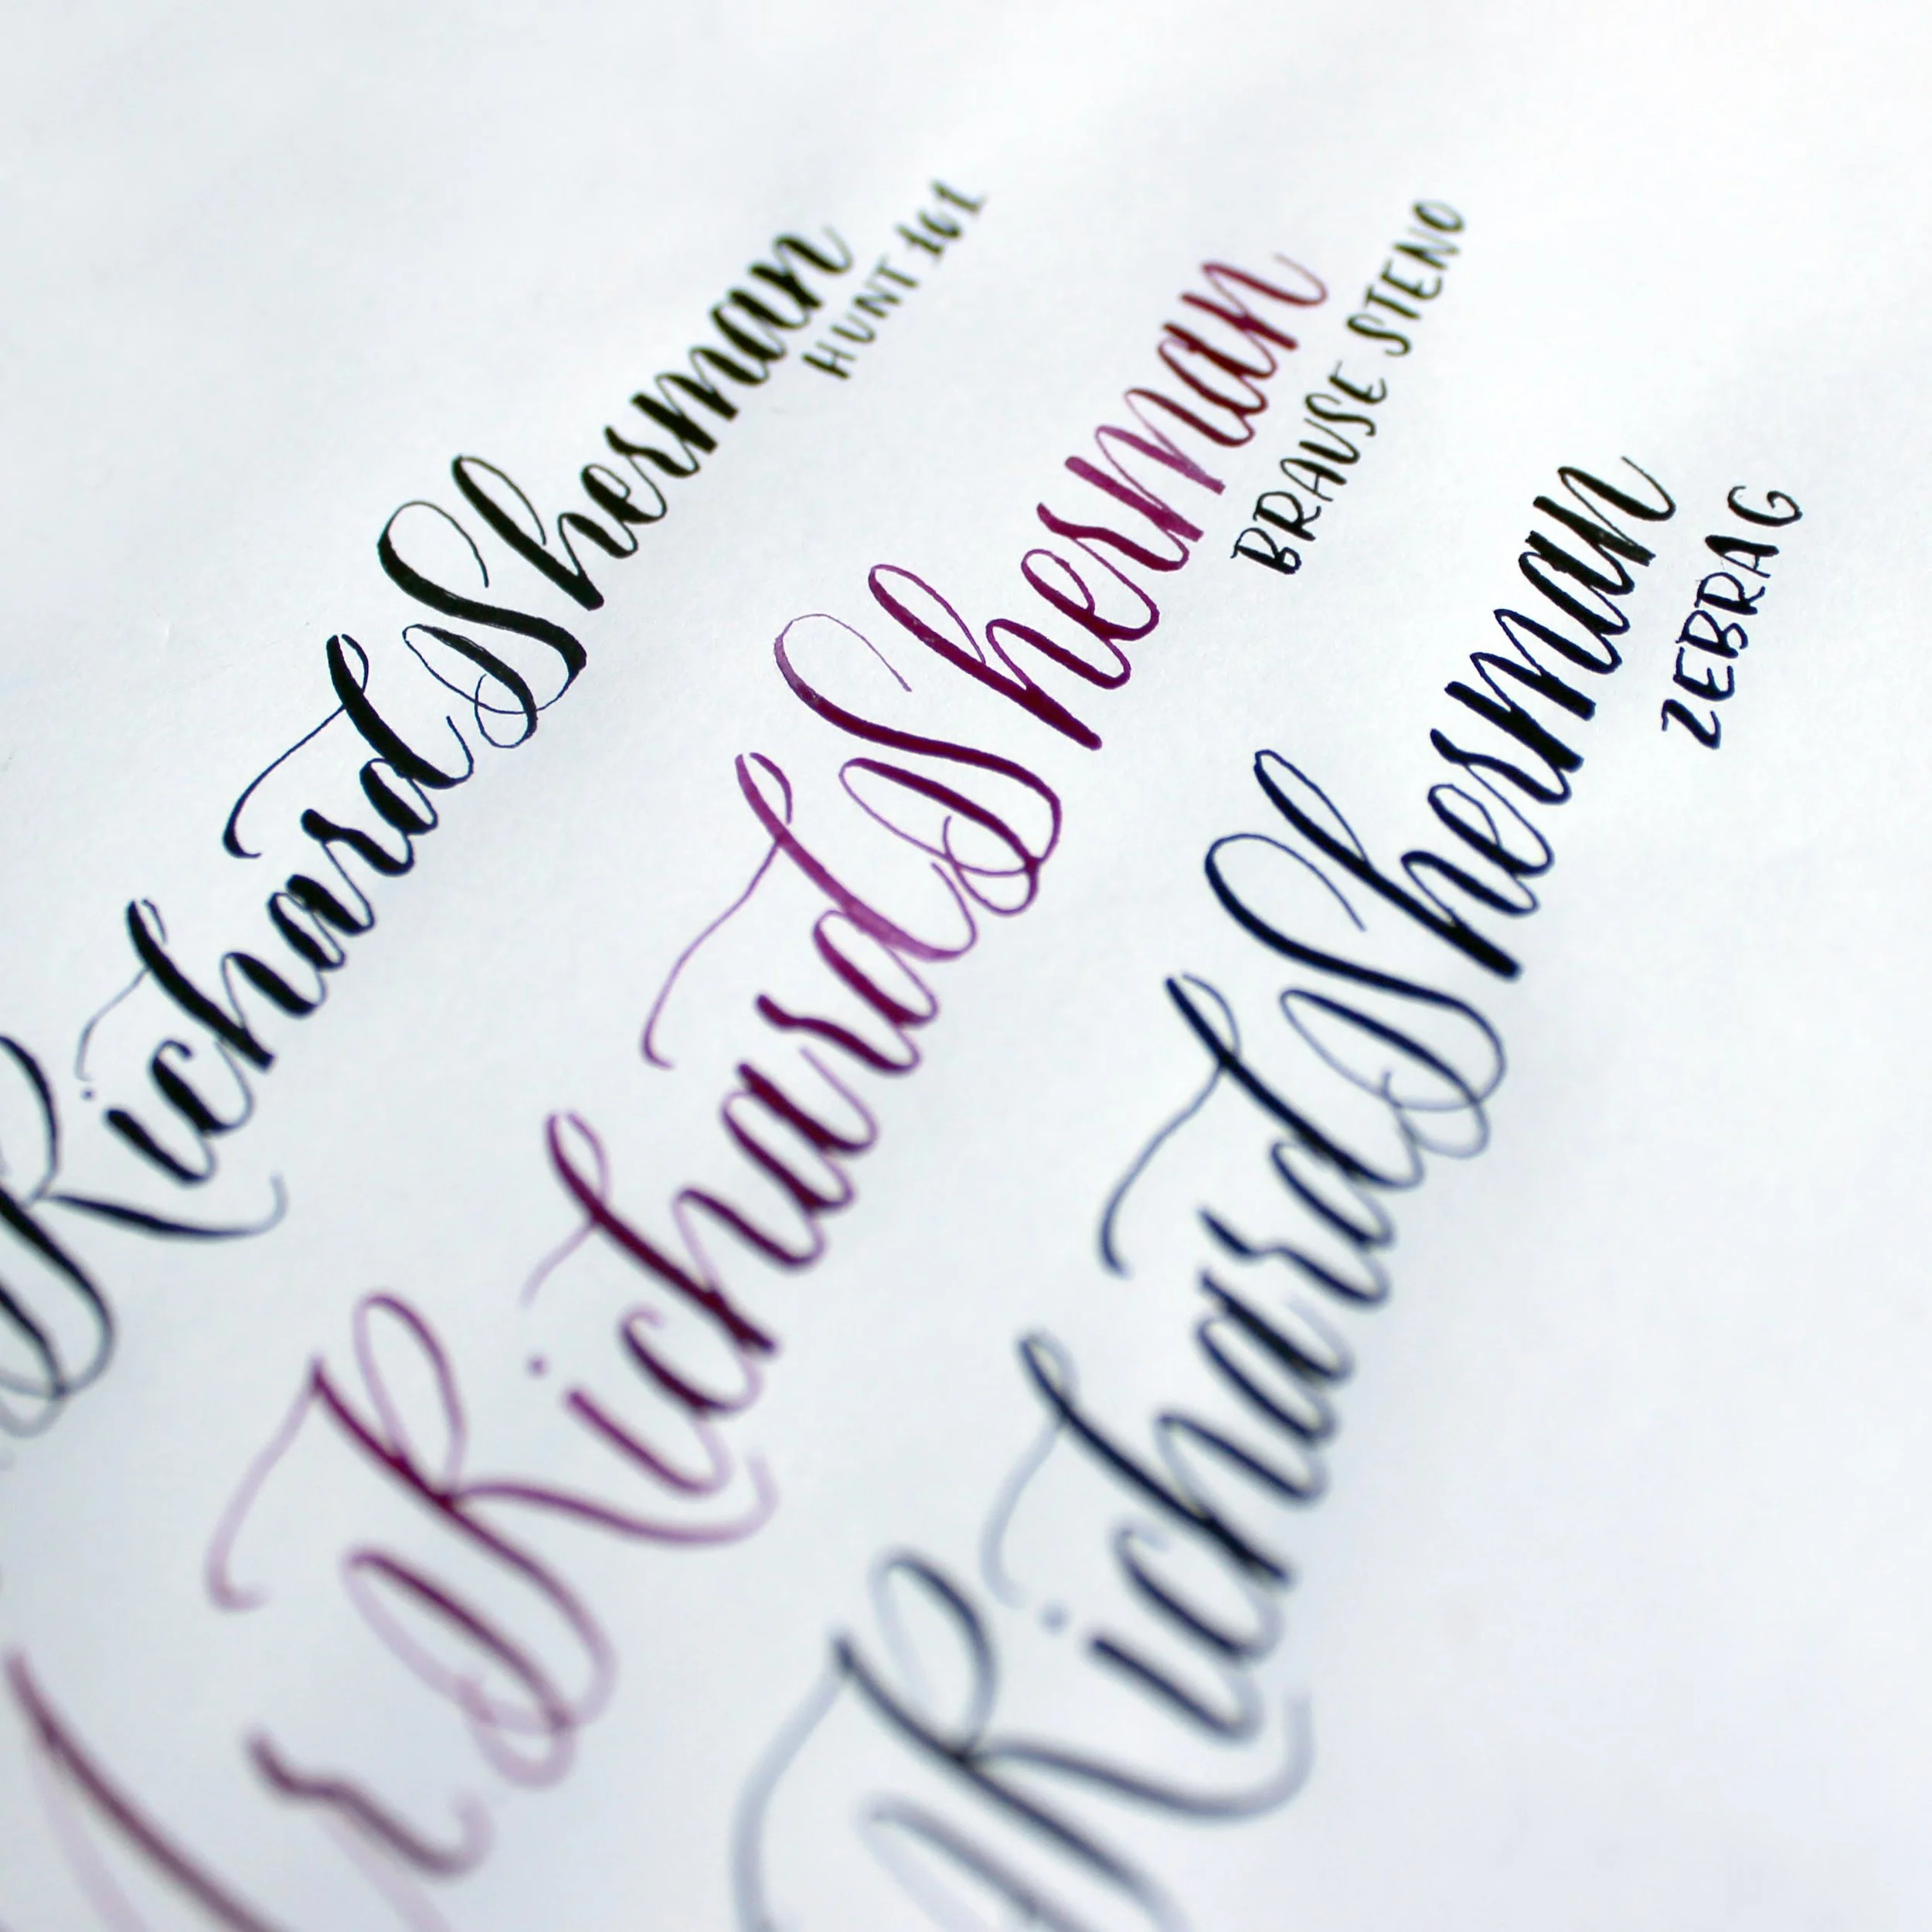 Richard Sherman
HUNT 101
Mr Richard Sherman
BRAUSE STENO
Richard Sherman
ZEBRA G